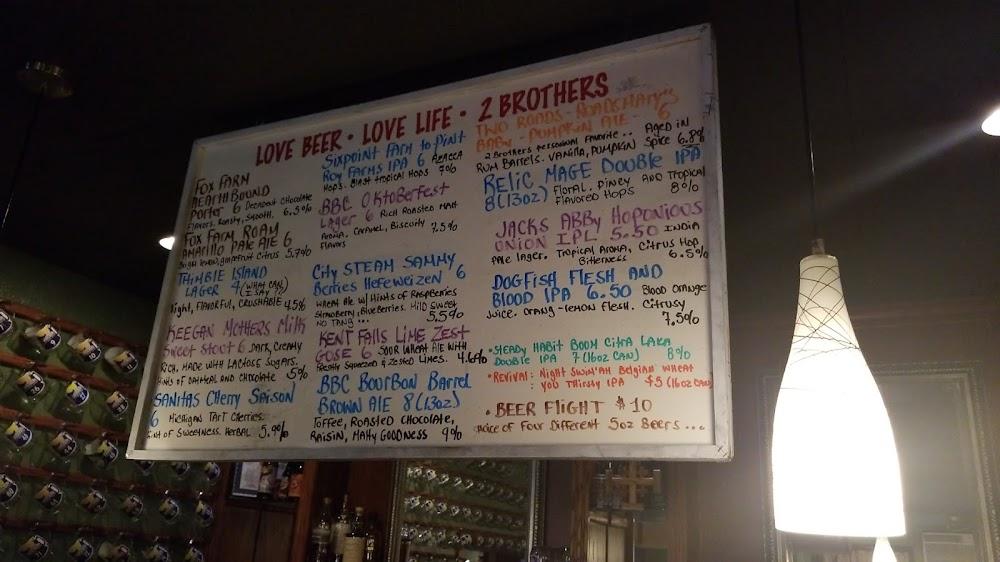 LOVE BEER · LOVE LIFE · 2 BROTHERS
FOX FARM
HEARTHBOUND
PORTER 6 DECADENT CHOCOLATE
FLAVORS, ROASTY, SMOOTH. 6.5%
FOX FARM ROAM
AMARILLO PALE ALE 6
BRIGHT LEMON, GRAPEFRUIT CITRUS 5.7%
THIMBLE ISLAND
LAGER 4 (WHAT CAN I SAY?)
LIGHT, FLAVORFUL, CRUSHABLE 4.5%
KEEGAN MOTHERS MILK
SWEET STOUT 6 DARK, CREAMY
RICH, MADE WITH LACTOSE SUGARS.
HINTS OF OATMEAL AND CHOCOLATE 5%
SANITAS CHERRY SAISON
6 MICHIGAN TART CHERRIES.
HINT OF SWEETNESS. HERBAL 5.9%
SIXPOINT FARM TO PINT
ROY FARMS IPA 6 AZACCA
HOPS. BLAST TROPICAL HOPS 7%
BBC OKTOBERFEST
LAGER 6 RICH ROASTED MALT
AROMA. CARAMEL, BISCUITY
FLAVORS 7.5%
CITY STEAM SAMMY
BERRIES HEFEWEIZEN 6
WHEAT ALE W/ HINTS OF RASPBERRIES
STRAWBERRY, BLUEBERRIES. MILD SWEET
NO TANG... 5.5%
KENT FALLS LIME ZEST
GOSE 6 SOUR WHEAT ALE WITH
FRESHLY SQUEEZED & ZESTED LIMES. 4.6%
BBC BOURBON BARREL
BROWN ALE 8 (13oz)
TOFFEE, ROASTED CHOCOLATE,
RAISIN, MALTY GOODNESS 9%
TWO ROADS - ROADSMARY'S
BABY - PUMPKIN ALE - 6
2 BROTHERS PERSONAL FAVORITE.. AGED IN
RUM BARRELS. VANILLA, PUMPKIN SPICE 6.8%
RELIC MAGE DOUBLE IPA
8 (13oz) FLORAL, PINEY AND TROPICAL
FLAVORED HOPS 8%
JACKS ABBY HOPONIOUS
UNION IPL 5.50 INDIA
PALE LAGER. TROPICAL AROMA, CITRUS HOP
BITTERNESS 6.5%
DOGFISH FLESH AND
BLOOD IPA 6.50 BLOOD ORANGE
JUICE. ORANG-LEMON FLESH. CITRUSY
7.5%
• STEADY HABIT BOOM CITRA LAKA
DOUBLE IPA 7 (16oz CAN) 8%
• REVIVAL: NIGHT SWIM'AH BELGIAN WHEAT
YOU THIRSTY IPA $5 (16oz CAN)
• BEER FLIGHT $10
CHOICE OF FOUR DIFFERENT 5oz BEERS...